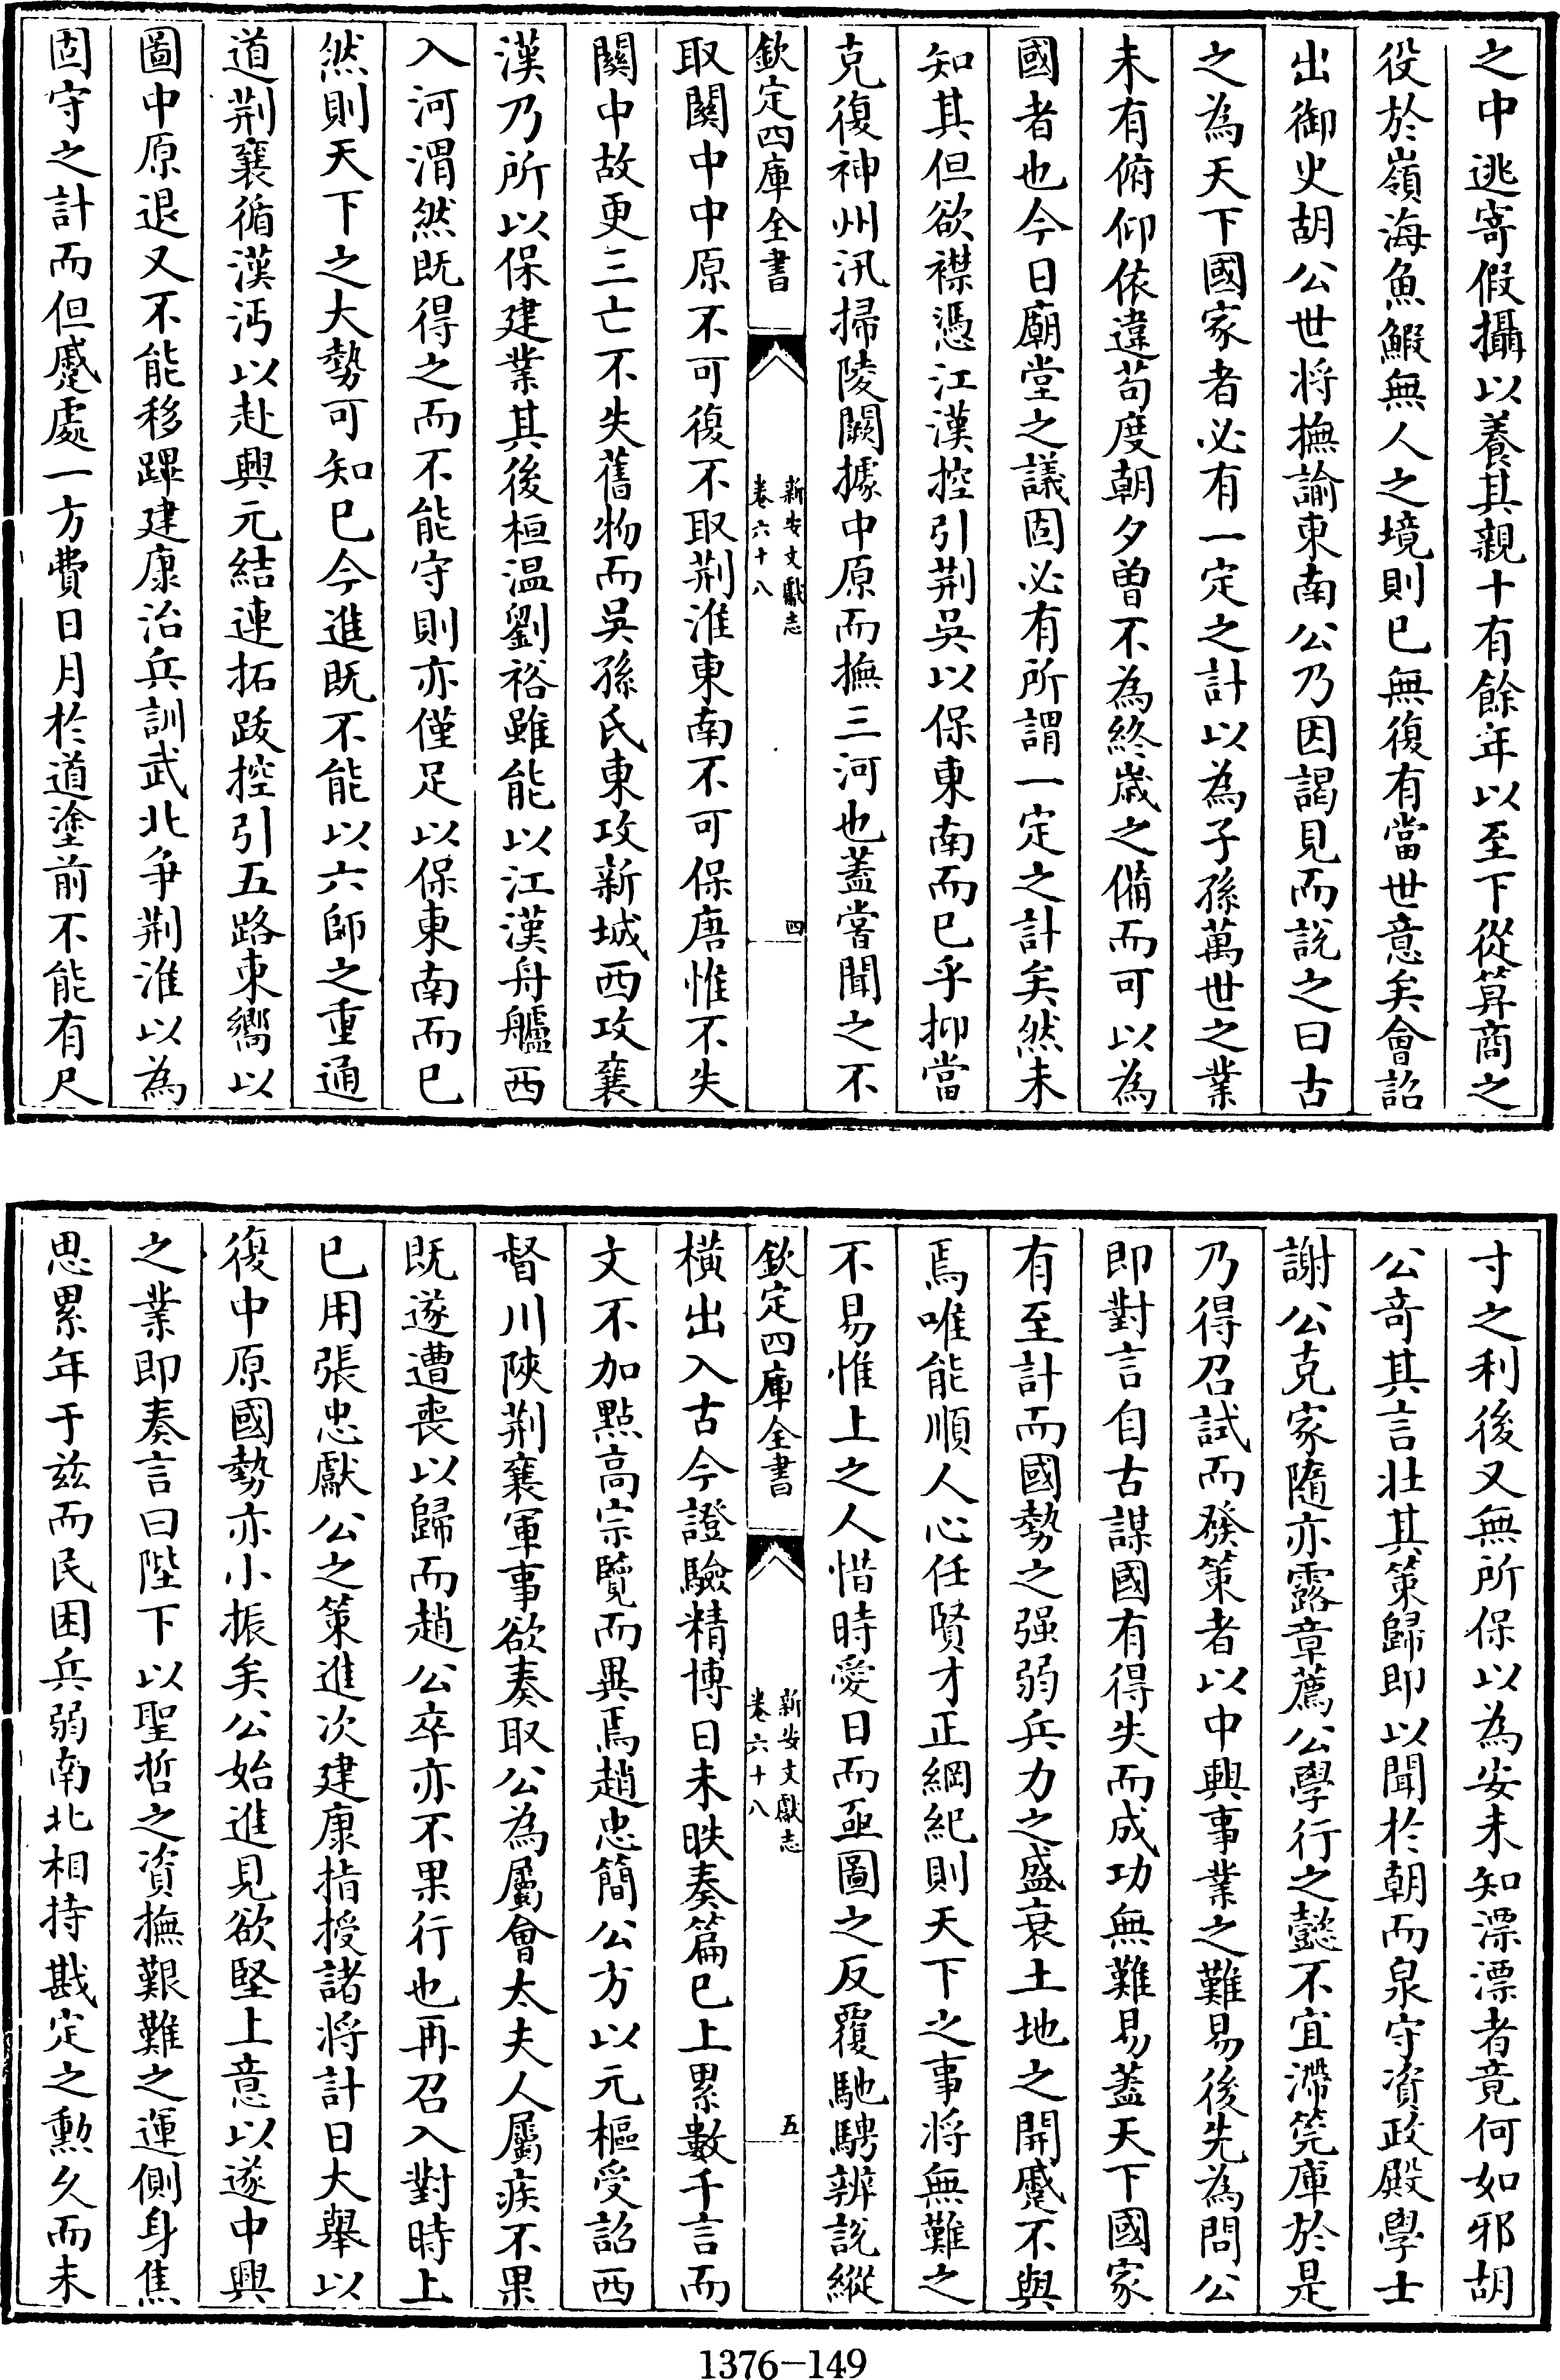 之中逃寄假攝以養其親十有餘年以至下從筭商之
役於嶺海魚鰕無人之境則已無復有當世意矣會詔
出御史胡公世将撫諭東南公乃因謁見而說之曰古
之為天下國家者必有一定之計以為子孫萬世之業
未有俯仰依違苟度朝夕曽不為終歲之備而可以為
國者也今日廟堂之議固必有所謂一定之計矣然未
知其但欲襟憑江漢控引荆吳以保東南而已乎抑當
克復神州汛掃陵闕據中原而撫三河也蓋嘗聞之不
欽定四庫全書
新安文獻志
卷六十八
四
取關中中原不可復不取荆淮東南不可保唐惟不失
關中故更三亡不失舊物而吳孫氏東攻新城西攻襄
漢乃所以保建業其後桓温劉裕雖能以江漢舟艫西
入河渭然既得之而不能守則亦僅足以保東南而已
然則天下之大勢可知已今進既不能以六師之重通
道荆襄循漢沔以赴興元結連拓跋控引五路東嚮以
圖中原退又不能移蹕建康治兵訓武北争荆淮以為
固守之計而但蹙處一方費日月於道塗前不能有尺
寸之利後又無所保以為安未知漂漂者竟何如邪胡
公奇其言壮其策歸即以聞於朝而泉守資政殿學士
謝公克家隨亦露章薦公學行之懿不宜滯筦庫於是
乃得召試而發策者以中興事業之難易後先為問公
即對言自古謀國有得失而成功無難易蓋天下國家
有至計而國勢之强弱兵力之盛衰土地之開蹙不與
焉唯能順人心任賢才正綱紀則天下之事將無難之
不易惟上之人惜時愛日而亟圖之反覆馳騁辨說縱
欽定四庫全書
新安文獻志
卷六十八
五
橫出入古今證驗精博日未昳奏篇已上累數千言而
文不加點高宗覽而異焉趙忠簡公方以元樞受詔西
督川陝荆襄軍事欲奏取公為屬會太夫人屬疾不果
既遂遭喪以歸而趙公卒亦不果行也再召入對時上
已用張忠獻公之策進次建康指授諸將計日大舉以
復中原國勢亦小振矣公始進見欲堅上意以遂中興
之業即奏言曰陛下以聖哲之資撫艱難之運側身焦
思累年于兹而民困兵弱南北相持戡定之勳久而未
1376-149